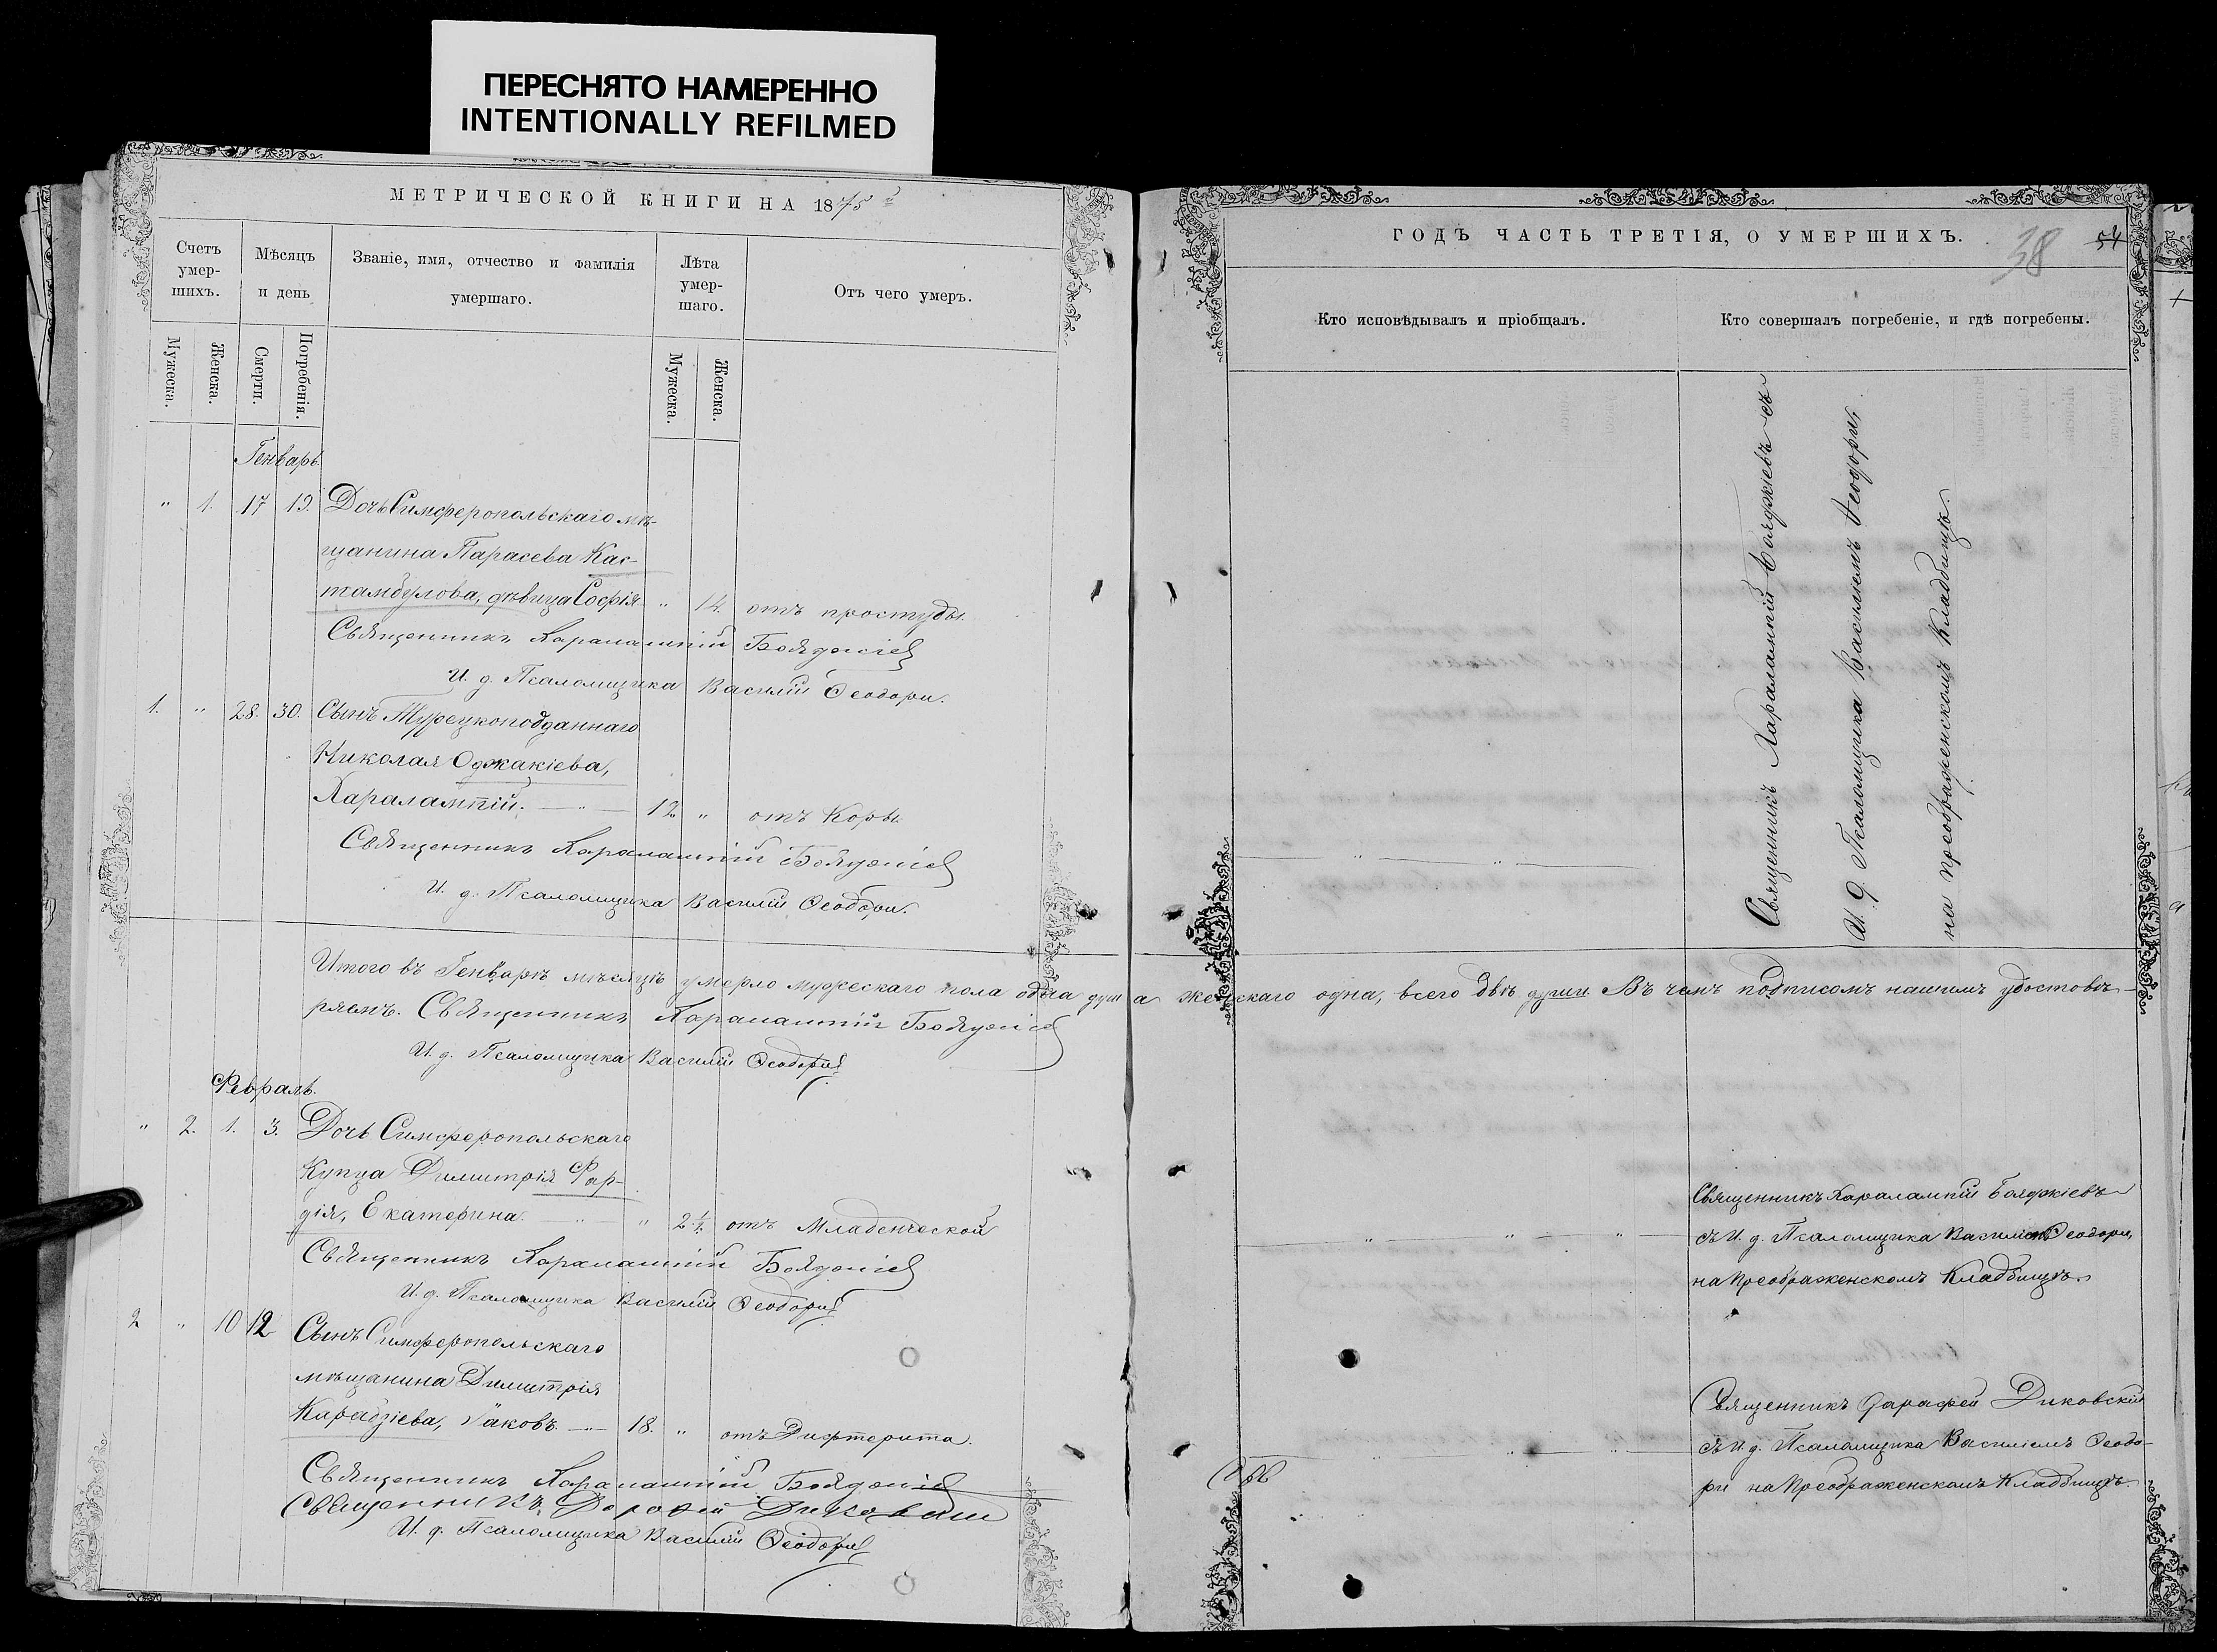 ПЕРЕСНЯТО НАМЕРЕННО
INTENTIONALLY REFILMED
МЕТРИЧЕСКОЙ КНИГИ НА 1875
Счетъ умер-шихъ.
Мѣсяцъ и день
Званіе, имя, отчество и фамилія умершаго.
Лѣта умер-шаго.
Отъ чего умеръ.
Мужеска.
Женска.
Смерти.
Погребенія.
Мужеска.
Женска.
Генварь.
" 1. 17 19. Дочь Симферопольскаго мѣ-
щанина Парасева Кас-
тамбулова, дѣвица Софія " 14 отъ простуды.
Священникъ Харалампій Бояджіевъ
И. д. Псаломщика Василій Ѳеодори.
1. " 28. 30. Сынъ Турецкоподданнаго
Николая Оджакіева,
Харалампій. — " — 12 " отъ Коры.
Священникъ Харалампій Бояджіевъ
И. д. Псаломщика Василій Ѳеодори.
Итого въ Генварѣ мѣсяцѣ умерло мужескаго пола одна душа женскаго одна, всего двѣ души. Въ чемъ подписомъ нашимъ удостовѣ-
ряемъ. Священникъ Харалампій Бояджіевъ
И. д. Псаломщика Василій Ѳеодори
Февраль.
" 2. 1. 3. Дочь Симферопольскаго
Купца Димитрія Фар-
дія, Екатерина. — " — " 2½. отъ Младенческой
Священникъ Харалампій Бояджіевъ
И. д. Псаломщика Василій Ѳеодори
2 " 10 12 Сынъ Симферопольскаго
мѣщанина Димитрія
Карабзіева, Іаковъ. — " — 18. " отъ Дифтерита.
Священникъ Харалампій Бояджіевъ
Священникъ Дороѳей Диковскій
И. д. Псаломщика Василій Ѳеодори
ГОДЪ ЧАСТЬ ТРЕТІЯ, О УМЕРШИХЪ.
38
54
Кто исповѣдывалъ и пріобщалъ.
Кто совершалъ погребеніе, и гдѣ погребены.
Священникъ Харалампій Бояджіевъ съ
И. д. Псаломщика Василіемъ Ѳеодори,
на Преображенскомъ Кладбищѣ.
Священникъ Харалампій Бояджіевъ
съ И. д. Псаломщика Василіемъ Ѳеодори,
на Преображенскомъ Кладбищѣ.
Священникъ Дарофей Диковскій
съ И. д. Псаломщика Василіемъ Ѳеодо-
ри на Преображенскомъ Кладбищѣ.